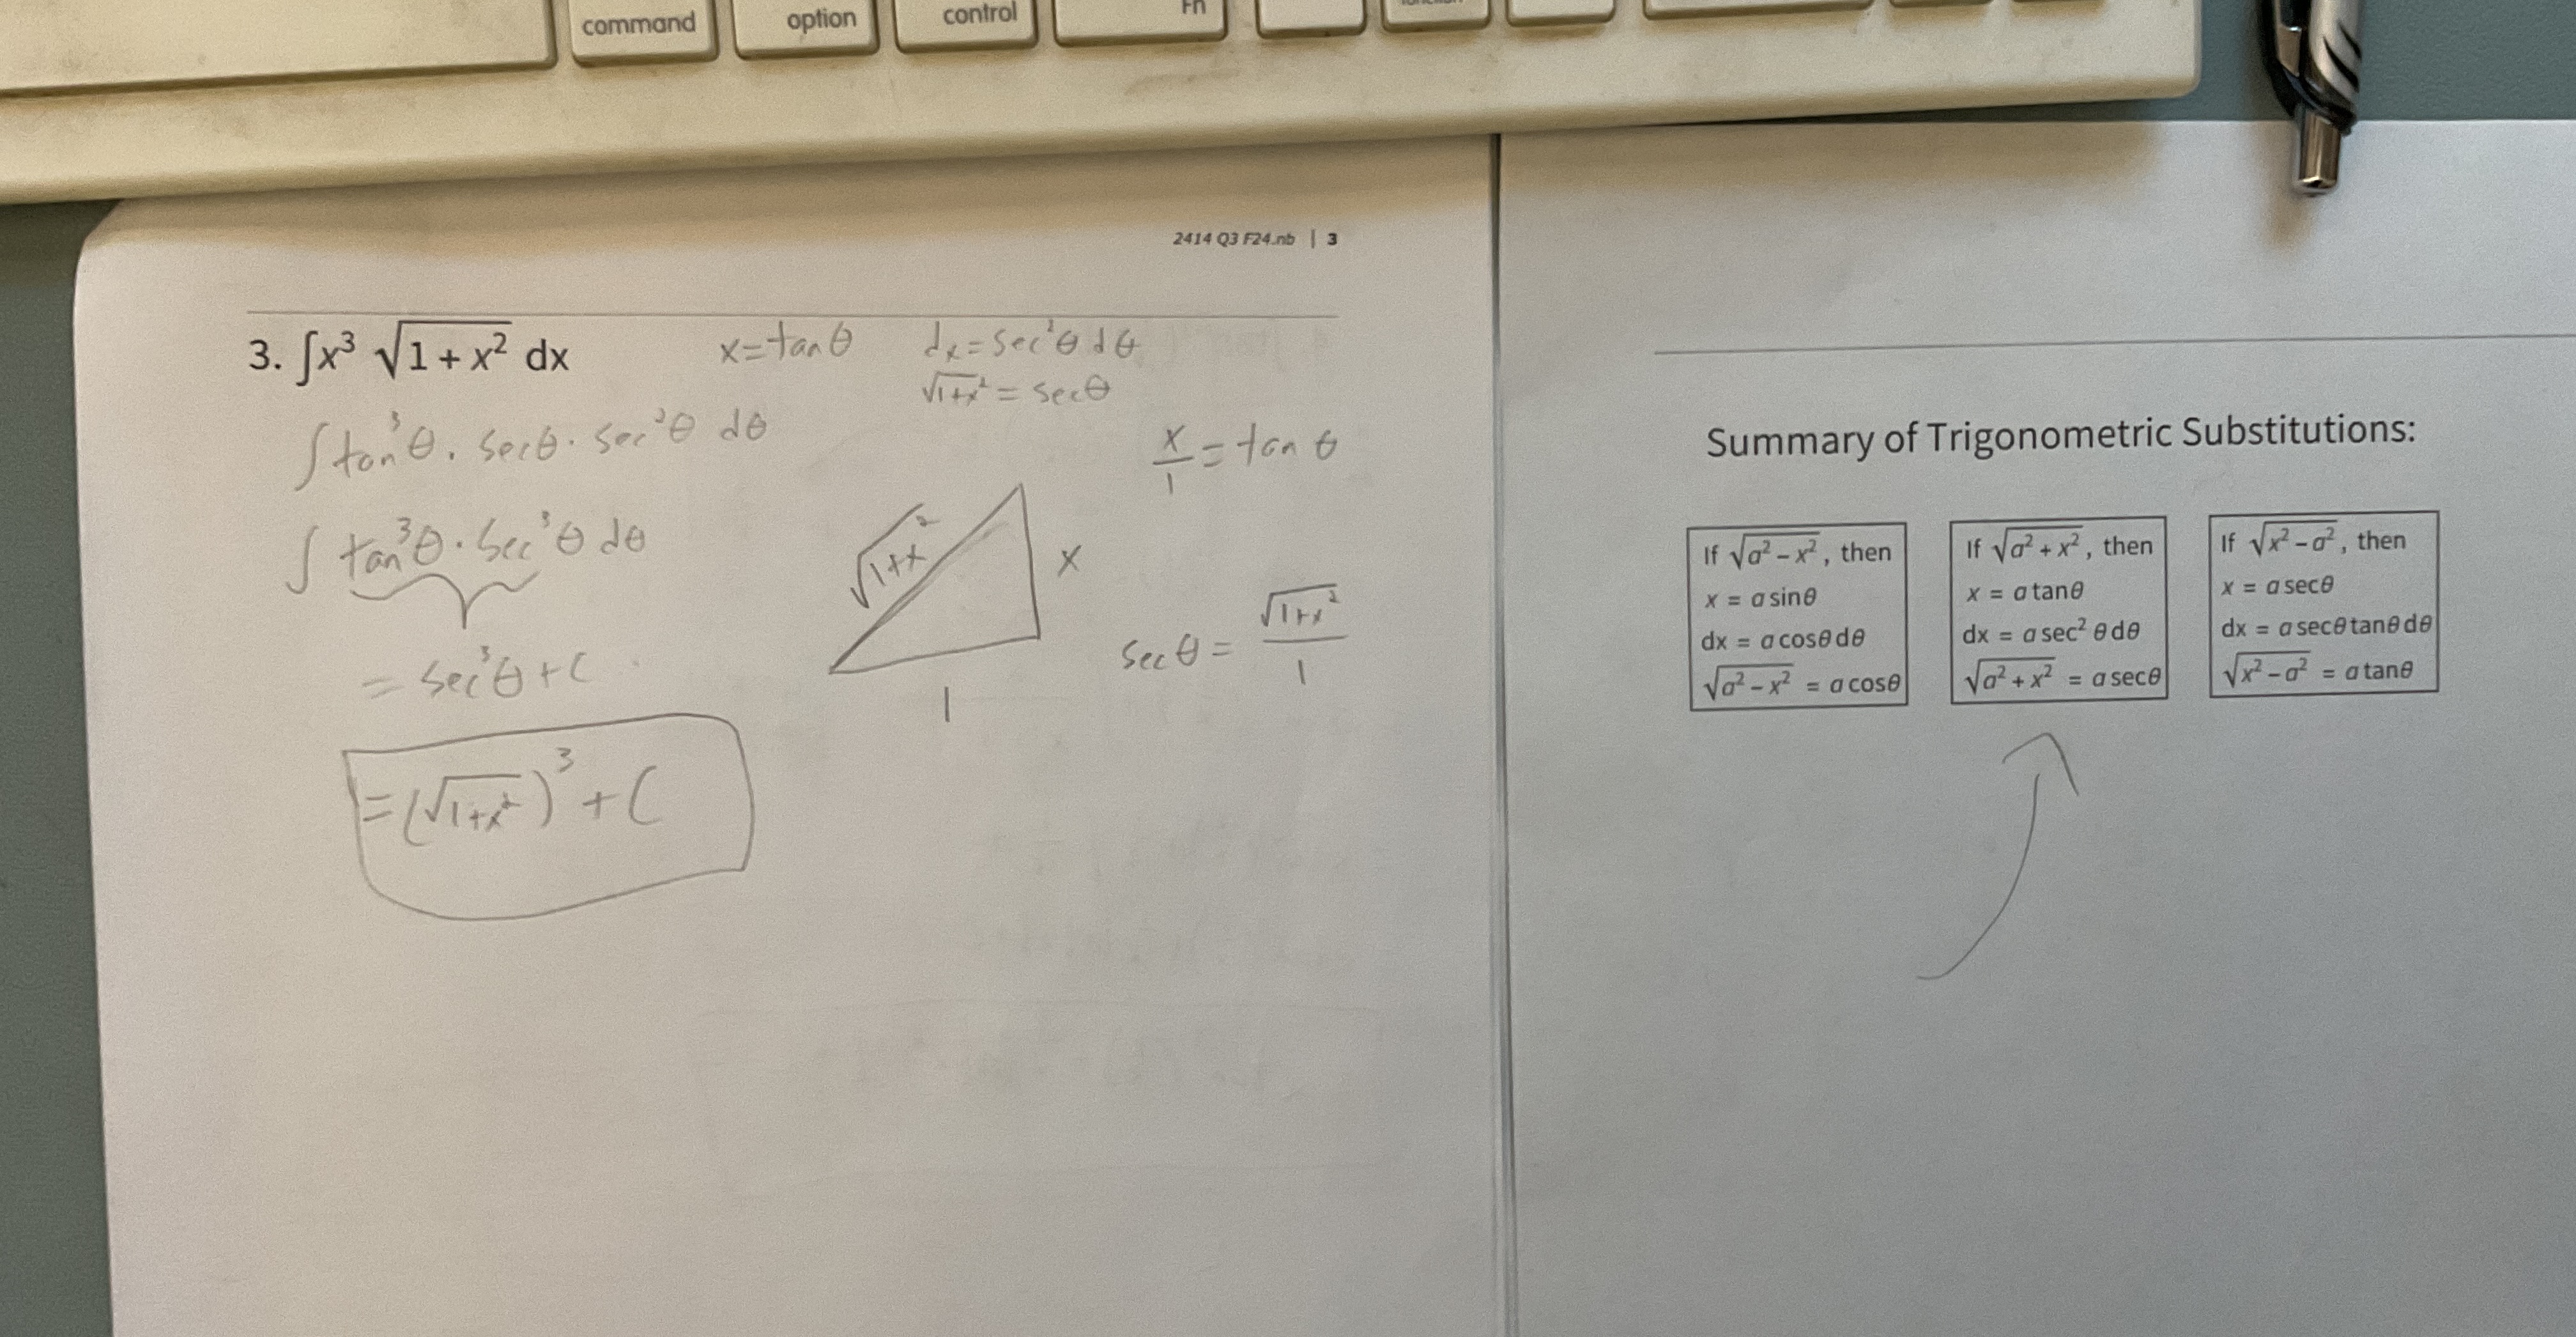 command option control Fn
2414 Q3 F24.nb | 3
3. ∫x³ √(1 + x²) dx
x = tan θ dx = sec²θ dθ
√(1+x²) = sec θ
∫ tan³θ · sec θ · sec²θ dθ
x/1 = tan θ
∫ tan³θ · sec³θ dθ
√(1+x²)
x
1
sec θ = √(1+x²)/1
= sec³θ + C
= (√(1+x²))³ + C
Summary of Trigonometric Substitutions:
If √(a² − x²), then
x = a sinθ
dx = a cosθ dθ
√(a² − x²) = a cosθ
If √(a² + x²), then
x = a tanθ
dx = a sec² θ dθ
√(a² + x²) = a secθ
If √(x² − a²), then
x = a secθ
dx = a secθ tanθ dθ
√(x² − a²) = a tanθ